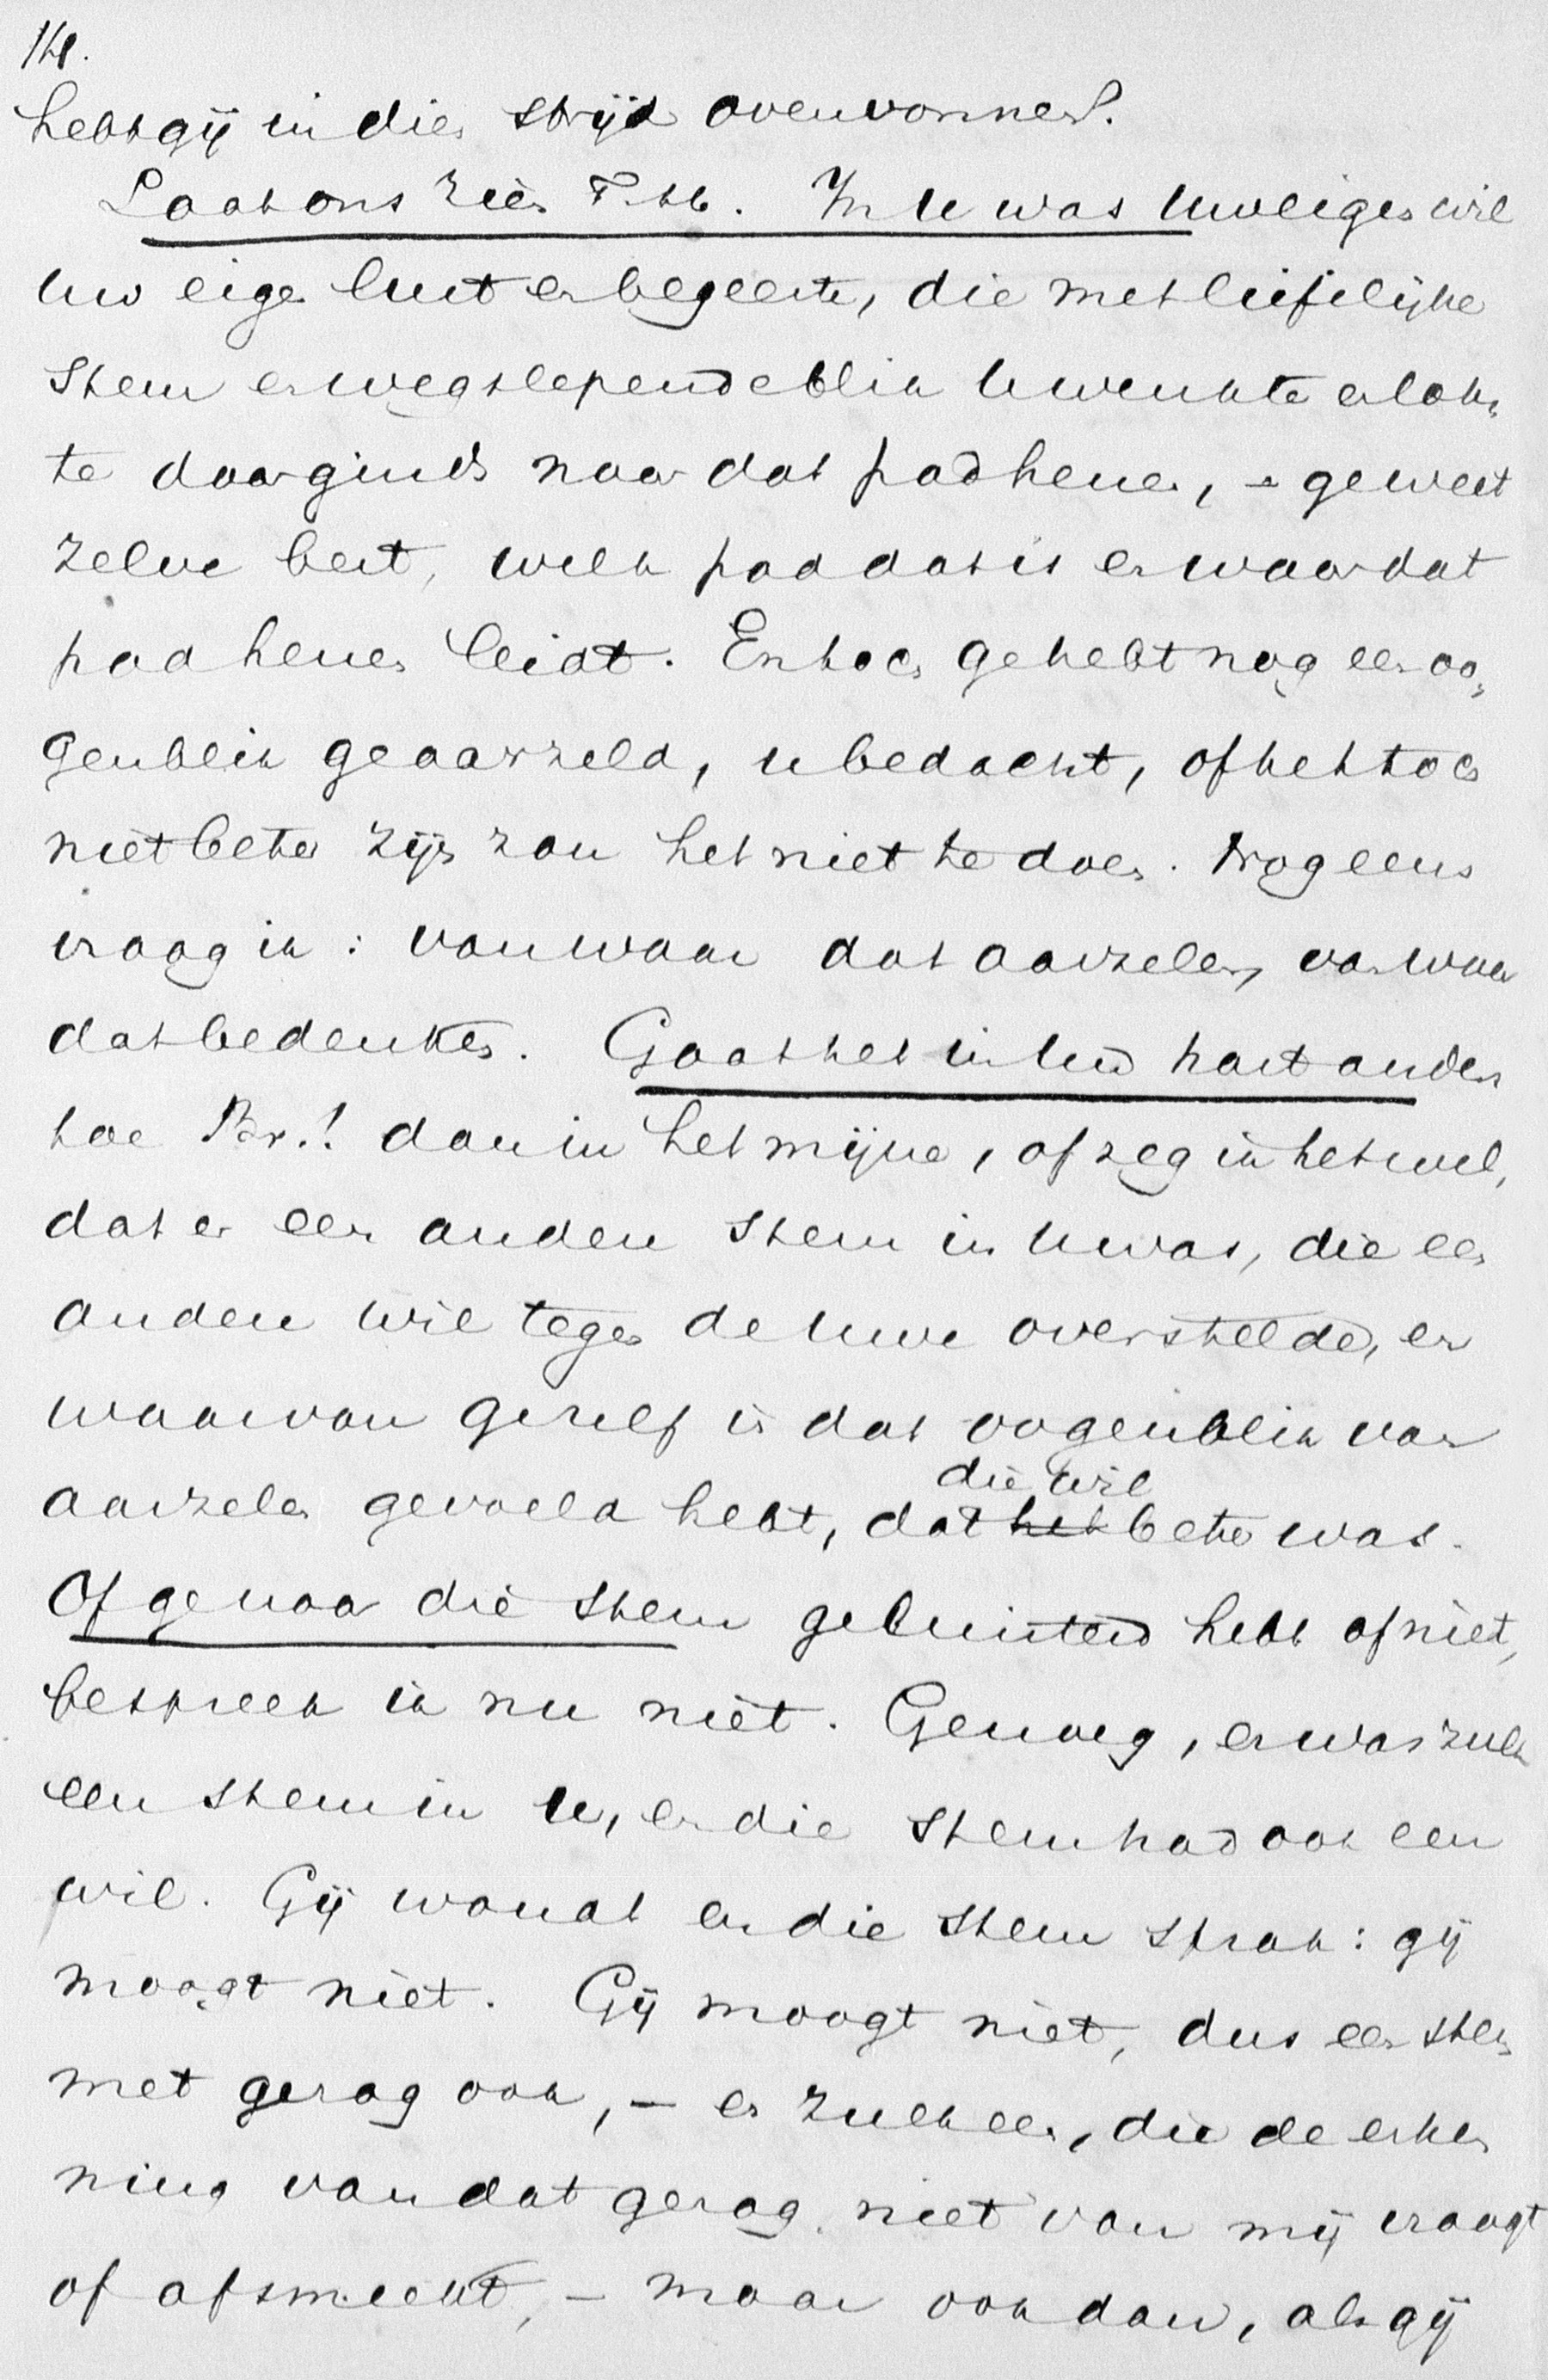 14.
hebt gij in dien strijd overwonnen.
Laat ons zien T. H. In U was Uw eigen wil
Uw eigen lust en begeerte, die met liefelijke
stem en wegslependen blik U wenkte en lok„
te daarginds naar dat pad henen, – ge weet
zelve best, welk pad dat is en waar dat
pad henen leidt. En toch, ge hebt nog een oo„
genblik geaarzeld, u bedacht, of het toch
niet beter zijn zou het niet te doen. Nog eens
vraag ik: van waar dat aarzelen, van waar
dat bedenken. Gaat het in Uw hart anders
toe Br.! dan in het mijne, of zeg ik het wel,
dat er een andere stem in U was, die een
anderen wil tegen de Uwe overstelde, en
waarvan ge zelf in dat oogenblik van
aarzelen gevoeld hebt, dat het die wil beter was.
Of ge naar die stem geluisterd hebt of niet,
bespreek ik nu niet. Genoeg, er was zulk
een stem in U, en die stem had ook een
wil. Gij woudt en die stem sprak: gij
moogt niet. Gij moogt niet, dus een stem
met gezag ook, – en zulk een, die de erken
ning van dat gezag niet van mij vraagt
of afsmeekt, – maar ook dan, als gij